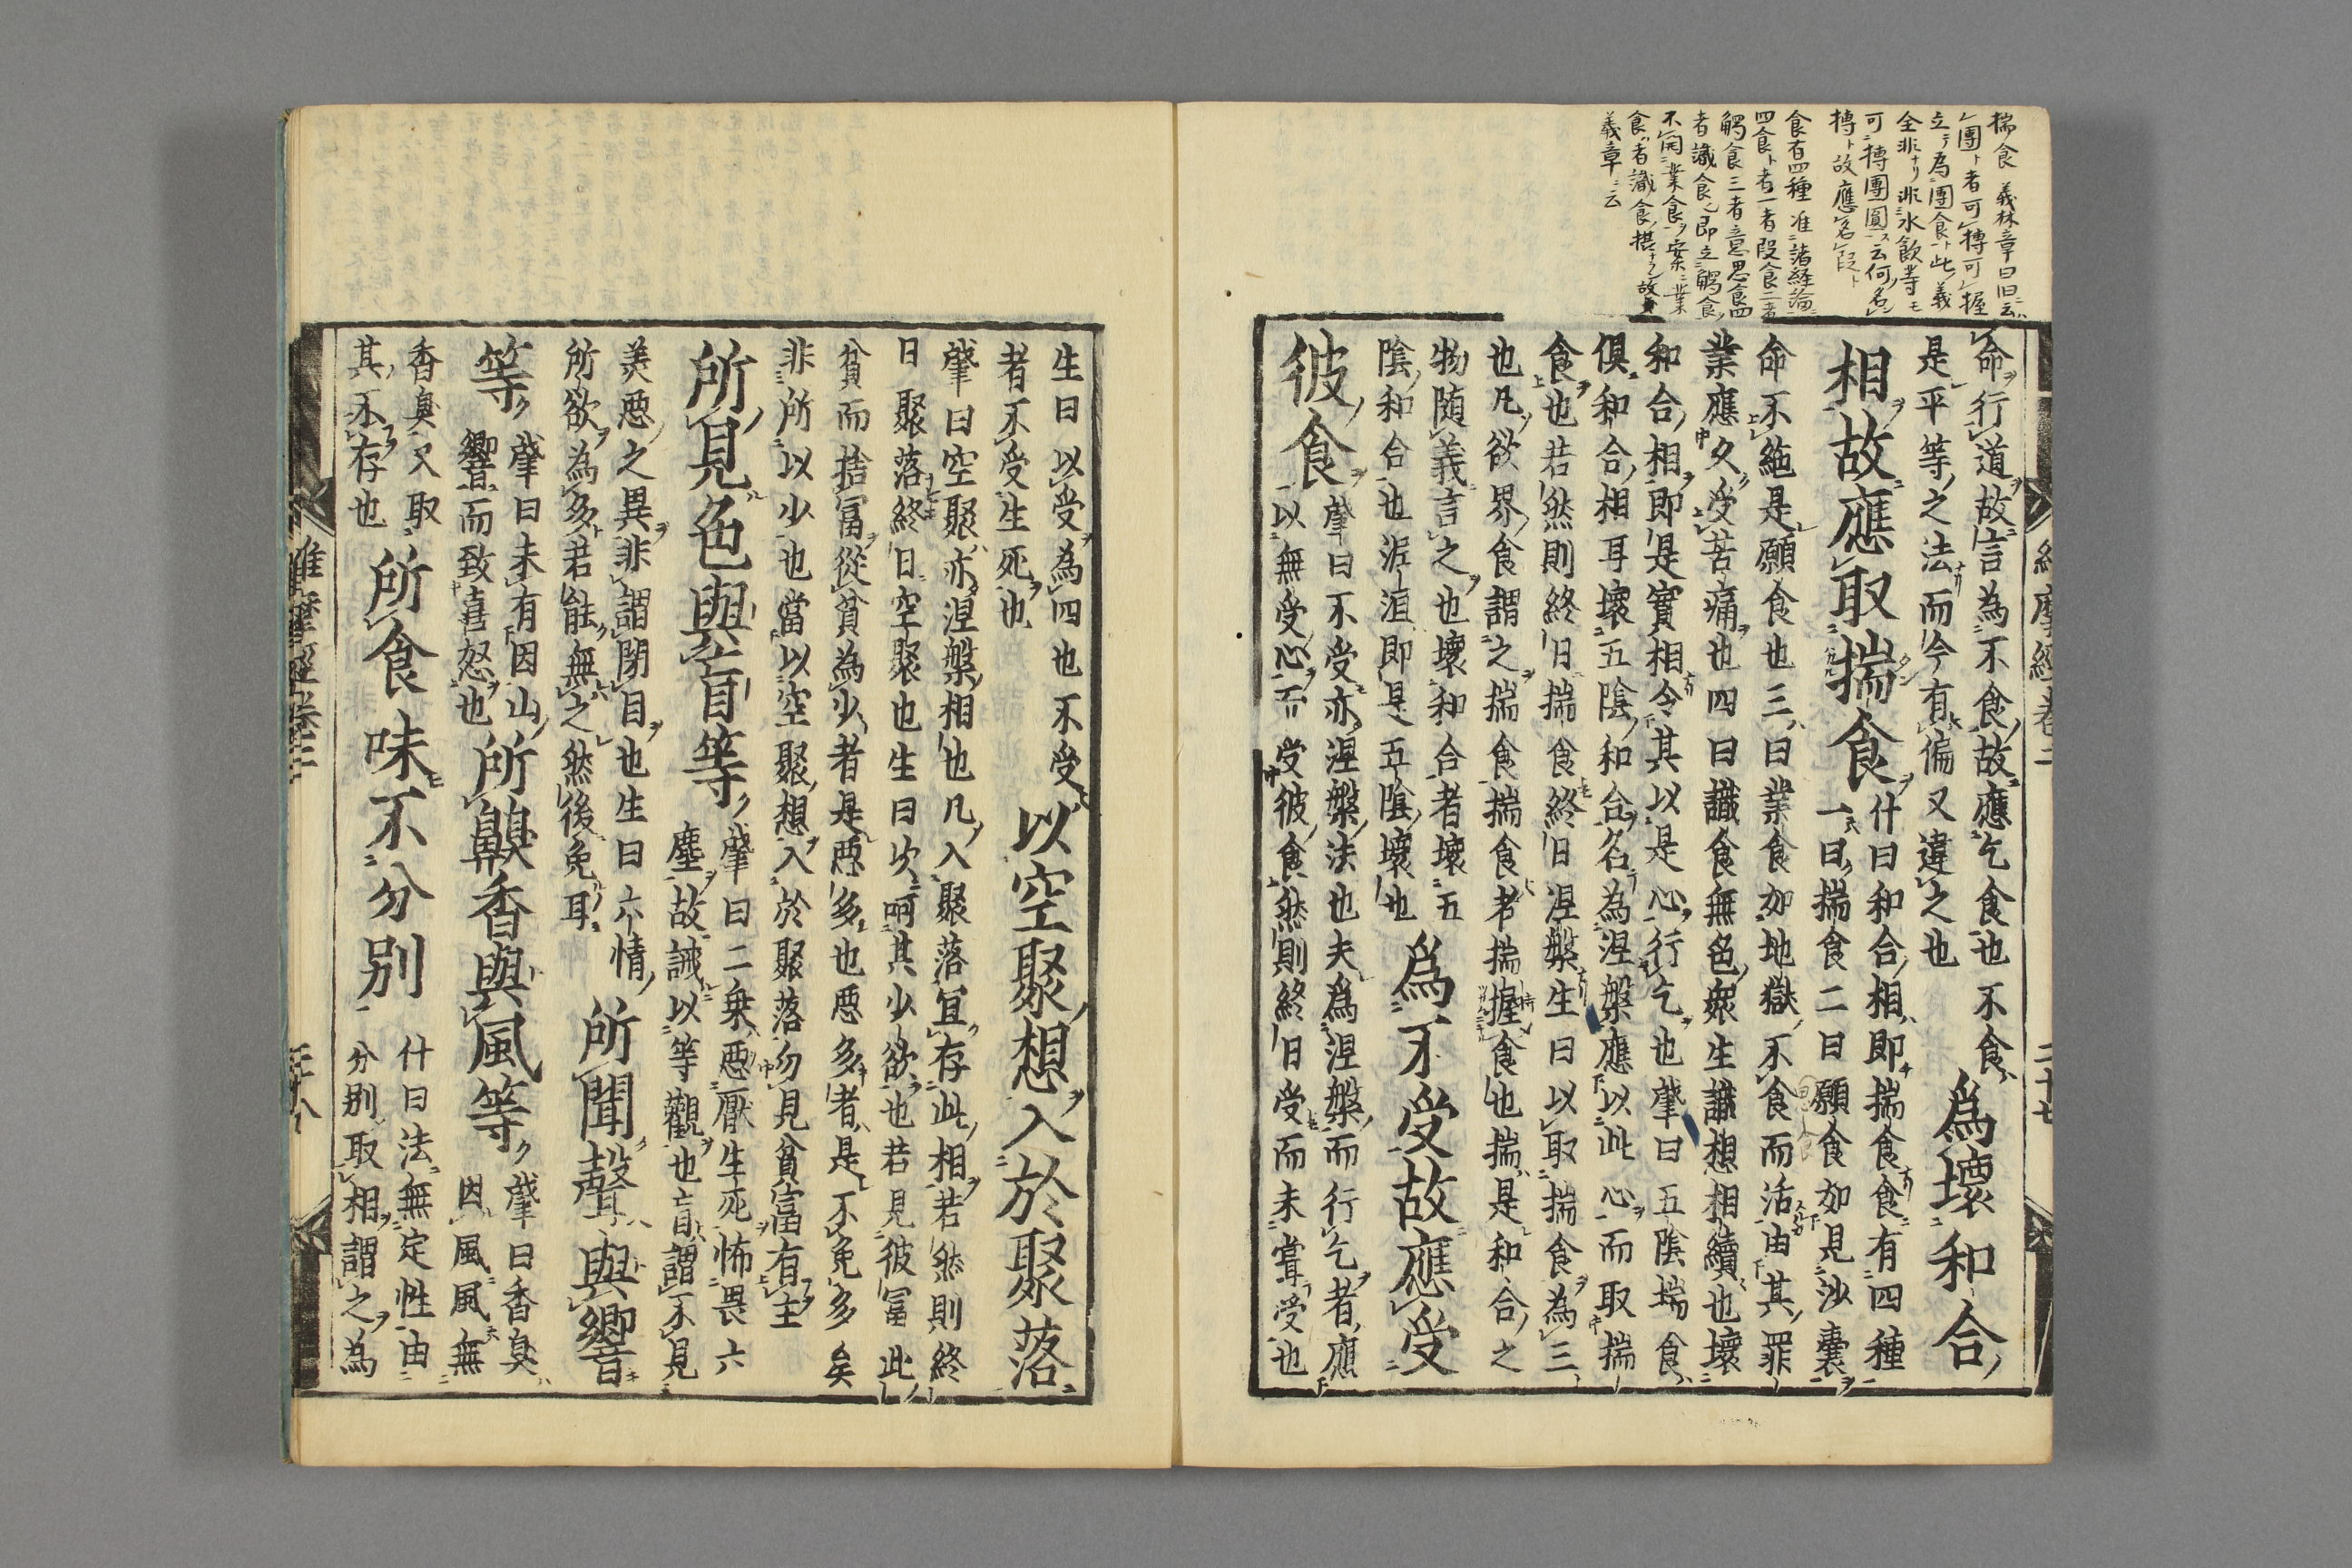 揣食 義林章曰旧云
團ト者可摶可握
立テ為團食ト此義
全非ナリ非水飲等モ
可摶團圓ス云何名
摶ト故應名段ト
食有四種准諸経論
四食ト者一者段食二者
觸食三者意思食四
者識食即立觸食
不開業食ヲ案ニ業
食者識食ノ摂ナラン故
義章ニ云
命行道故言為不食故應乞食也不食
是平等之法而今有偏又違之也
為壞和合
相故應取揣食
什曰和合相即揣食食有四種
一曰揣食二曰願食如見沙囊
命不絶是願食也三曰業食如地獄不食而活由其罪
業應久受苦痛也四曰識食無色衆生識想相續也壞
和合相即是實相令其以是心行乞也肇曰五陰揣食
俱和合相耳壞五陰和合名為涅槃應以此心而取揣
食也若然則終日揣食終日涅槃生曰以取揣食為三
也凡欲界食謂之揣食揣食者揣握食也揣是和合之
物随義言之也壞和合者壞五
陰和合也泥洹即是五陰壞也
為不受故應受
彼食
肇曰不受亦涅槃法也夫為涅槃而行乞者應
以無受心而受彼食然則終日受而未嘗受也
維摩經卷二
二十七
生曰以受為四也不受
者不受生死也
以空聚想入於聚落
肇曰空聚亦涅槃相也凡入聚落宜存此相若然則終
日聚落終日空聚也生曰次呵其少欲也若見彼富此
貧而捨富從貧為少者是惡多也惡多者是不免多矣
非所以少也當以空聚想入於聚落勿見貧富有主
所見色與盲等
肇曰二乗惡厭生死怖畏六
塵故誡以等觀也盲謂不見
美惡之異非謂閉目也生曰六情
所欲為多若能無之然後免耳
所聞聲與響
等
肇曰未有因山
響而致喜怒也
所齅香與風等
肇曰香臭
因風風無
香臭又取
其不存也
所食味不分别
什曰法無定性由
分别取相謂之為
維摩經卷二
二十八